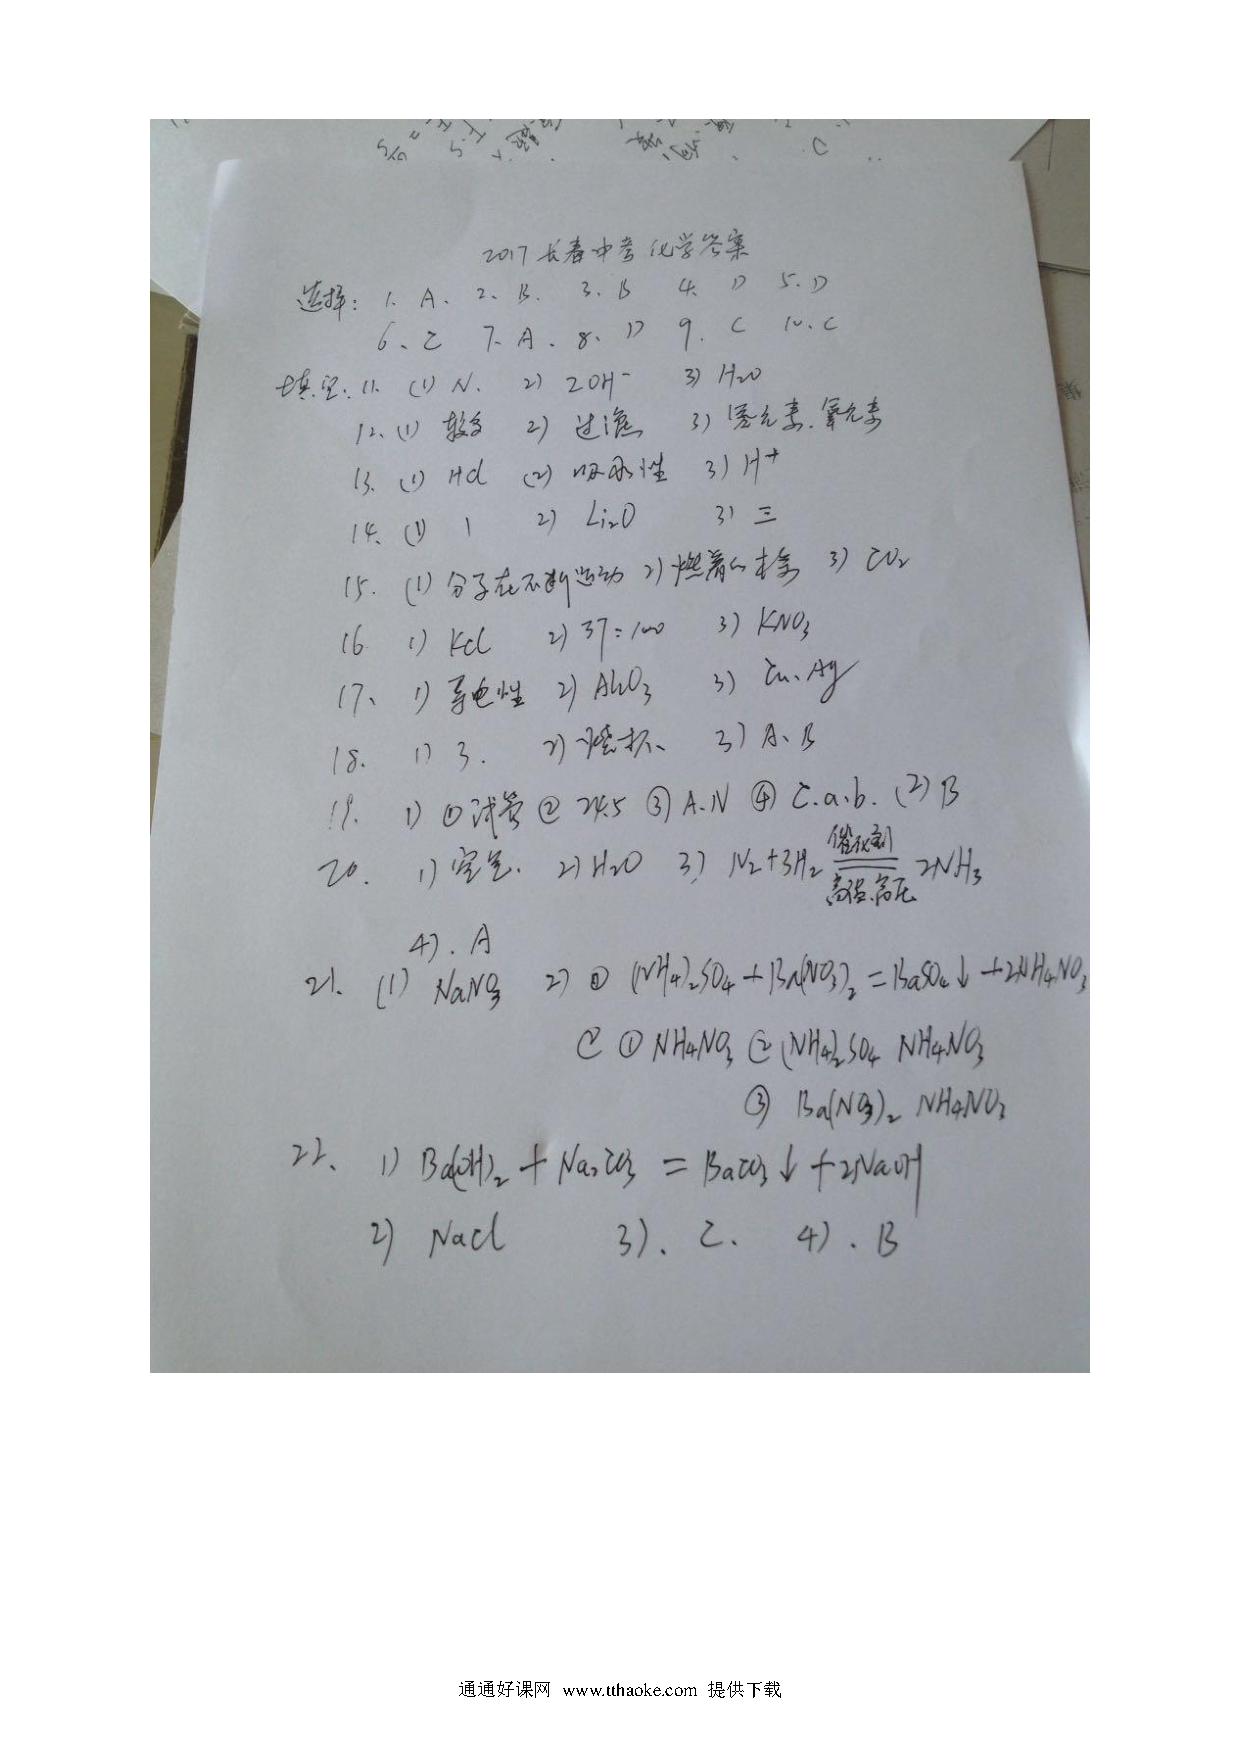 2017长春中考化学答案
选择: 1. A、 2、B. 3. B 4. D 5. D
6、C 7、A、 8、D 9. C 10、C
填空: 11. (1) N. 2) 2OH⁻ 3) H₂O
12、(1) 较多 2) 过滤 3) 氢元素、氧元素
13、(1) HCl (2) 吸水性 3) H⁺
14、(1) 1 2) Li₂O 3) 三
15. (1) 分子在不断运动 2) 燃着的木条 3) CO₂
16 1) KCl 2) 37:100 3) KNO₃
17、 1) 导电性 2) Al₂O₃ 3) Cu、Ag
18. 1) 3. 2) 烧杯、 3) A、B
19. 1) ① 试管 ② 24.5 ③ A.N ④ C.a.b. (2) B
20. 1) 空气. 2) H₂O 3) N₂+3H₂ 催化剂 ══ 高温、高压 2NH₃
4). A
21. (1) NaNO₃ 2) ① (NH₄)₂SO₄+Ba(NO₃)₂=BaSO₄↓+2NH₄NO₃
② ① NH₄NO₃ ② (NH₄)₂SO₄ NH₄NO₃
③ Ba(NO₃)₂ NH₄NO₃
22、 1) Ba(OH)₂+Na₂CO₃=BaCO₃↓+2NaOH
2) NaCl 3). C. 4). B
通通好课网 www.tthaoke.com 提供下载